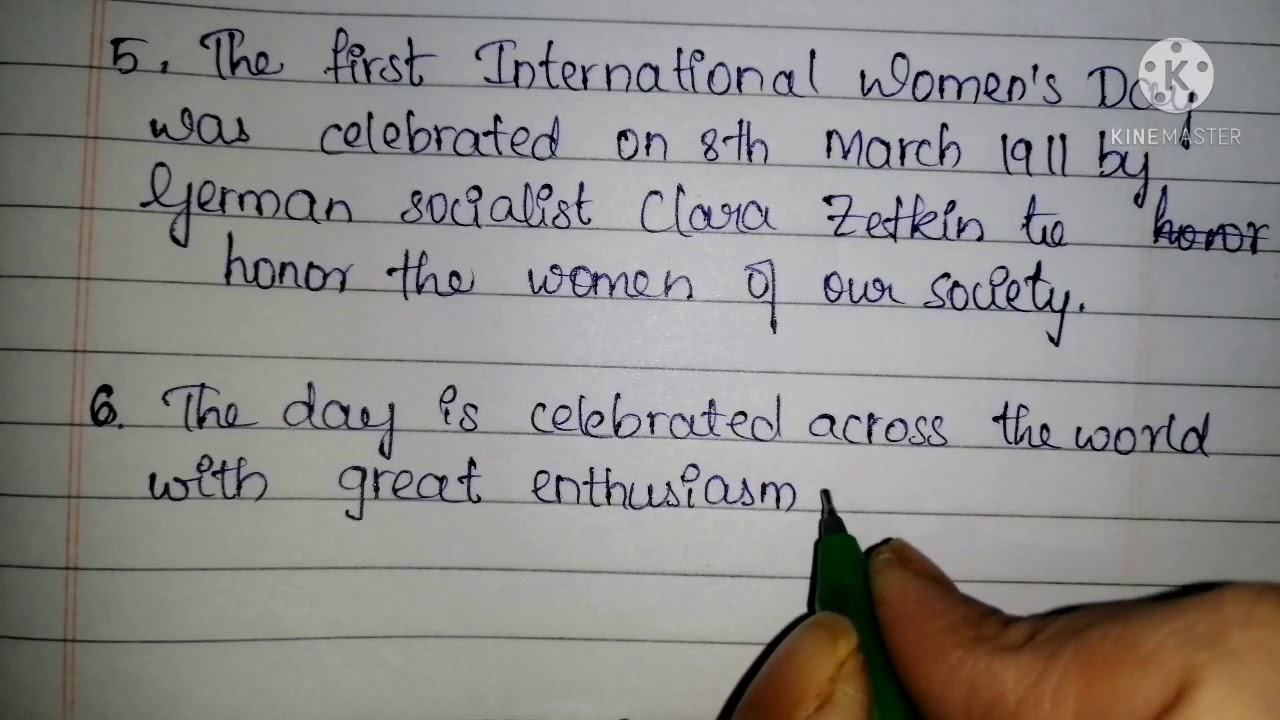 5. The first International Women's Day
was celebrated on 8th March 1911 by
German socialist Clara Zetkin to honor
honor the women of our society.
6. The day is celebrated across the world
with great enthusiasm
KINEMASTER